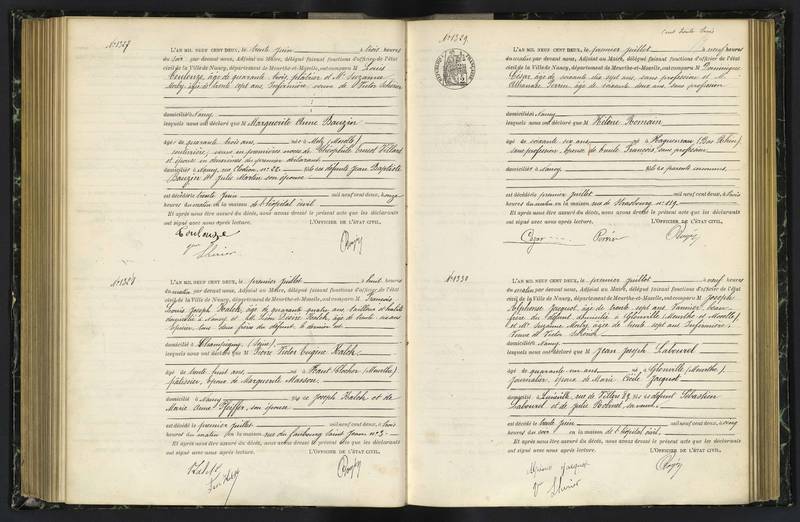 N° 1327
L'AN MIL NEUF CENT DEUX, le trente juin à trois heures
du soir par devant nous, Adjoint au Maire, délégué faisant fonctions d'officier de l'état
civil de la Ville de Nancy, département de Meurthe-et-Moselle, ont comparu M Louis
Toulouze, âgé de quarante trois, et Mme Suzanne
âgée de trente sept ans, Infirmière, veuve de Victor
domiciliés à Nancy
lesquels nous ont déclaré que M Marguerite Anne Bauzin
âgée de quarante trois ans, née à Metz (Moselle)
couturière, veuve en premières noces de Théophile Ernest Villard
et épouse en deuxièmes du premier déclarant
domiciliée à Nancy, rue Clodion, n° 22 fille de défunts Jean Baptiste
Bauzin et Julie Martin son épouse
est décédée le trente juin mil neuf cent deux, à onze
heures du matin en la maison de l'hôpital civil
Et après nous être assuré du décès, nous avons dressé le présent acte que les déclarants
ont signé avec nous après lecture. L'OFFICIER DE L'ÉTAT CIVIL,
Toulouze
Vve
N° 1328
L'AN MIL NEUF CENT DEUX, le premier juillet à huit heures
du matin par devant nous, Adjoint au Maire, délégué faisant fonctions d'officier de l'état
civil de la Ville de Nancy, département de Meurthe-et-Moselle, ont comparu M François
Louis Joseph Kalck, âgé de quarante quatre ans, tailleur d'habits
domicilié à Nancy et M. Léon Kalck, âgé de trente
épicier, tous deux frères du défunt, le dernier
domicilié à Champigny (Seine)
lesquels nous ont déclaré que M Pierre Victor Eugène Kalck
âgé de trente huit ans, né à Haut Clocher (Meurthe)
pâtissier, époux de Marguerite Masson
domicilié à Nancy fils de Joseph Kalck et de
Marie Anne Pfeiffer, son épouse
est décédé le premier juillet mil neuf cent deux, à trois
heures du matin en la maison rue du faubourg Saint Jean n° 3
Et après nous être assuré du décès, nous avons dressé le présent acte que les déclarants
ont signé avec nous après lecture. L'OFFICIER DE L'ÉTAT CIVIL,
N° 1329
L'AN MIL NEUF CENT DEUX, le premier juillet à neuf heures
du matin par devant nous, Adjoint au Maire, délégué faisant fonctions d'officier de l'état
civil de la Ville de Nancy, département de Meurthe-et-Moselle, ont comparu M Dominique
âgé de soixante dix sept ans, sans profession et M.
âgé de soixante deux ans, sans profession
domiciliés à Nancy
lesquels nous ont déclaré que M Hélène Romain
âgée de soixante six ans née à Haguenau (Bas Rhin)
sans profession, épouse de Emile François, sans profession
domiciliée à Nancy fille de parents inconnus
est décédée le premier juillet mil neuf cent deux, à trois
heures du matin en la maison rue de Strasbourg n° 119
Et après nous être assuré du décès, nous avons dressé le présent acte que les déclarants
ont signé avec nous après lecture. L'OFFICIER DE L'ÉTAT CIVIL,
N° 1330
L'AN MIL NEUF CENT DEUX, le premier juillet à neuf heures
du matin par devant nous, Adjoint au Maire, délégué faisant fonctions d'officier de l'état
civil de la Ville de Nancy, département de Meurthe-et-Moselle, ont comparu M Joseph
Alphonse Jacquot, âgé de trente sept ans, Vannier, beau
frère du défunt, domicilié à Glonville (Meurthe et Moselle)
et Mme Suzanne âgée de trente sept ans Infirmière,
Veuve de Victor
domiciliée à Nancy
lesquels nous ont déclaré que M Jean Joseph Labourel
âgé de quarante un ans né à Glonville (Meurthe)
Journalier, époux de Marie Cécile Jacquot
domicilié à Lunéville, rue de Villers 29 fils de défunt Sébastien
Labourel et de Julie
est décédé le trente juin mil neuf cent deux, à cinq
heures du soir en la maison de l'hôpital civil
Et après nous être assuré du décès, nous avons dressé le présent acte que les déclarants
ont signé avec nous après lecture. L'OFFICIER DE L'ÉTAT CIVIL,
Jacquot
Vve